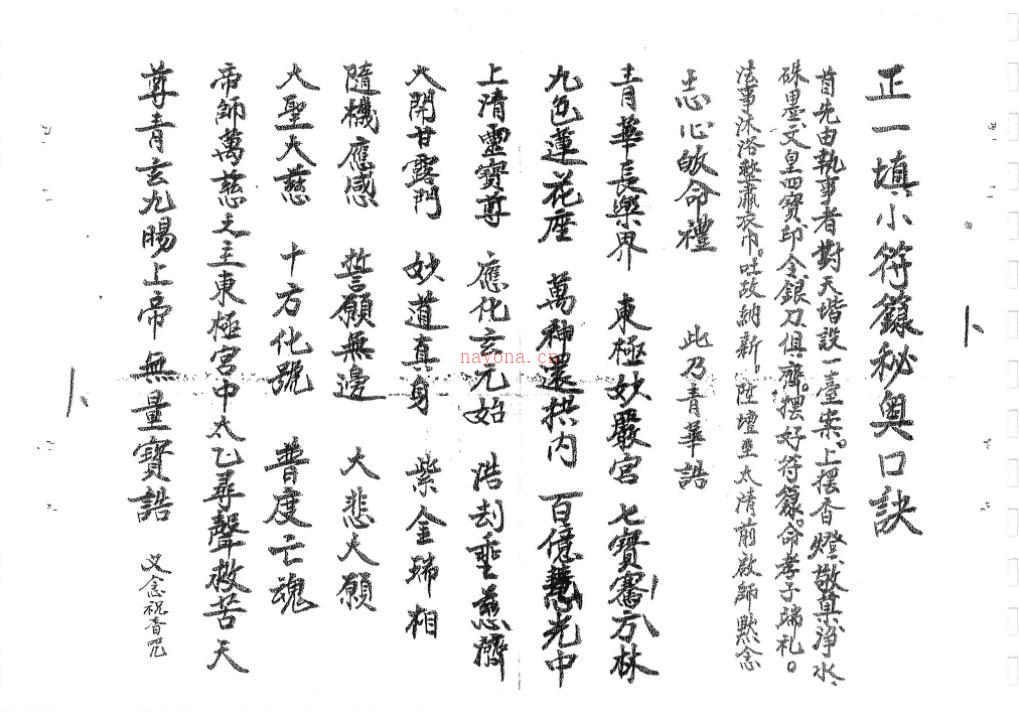 正一填小符籙秘奧口訣
首先由執事者對天堦設一臺案。上擺香燈、敬菓、淨水、
硃墨、文皇四寶印令、銀刀俱齊。擺好符籙。命孝子端礼。
法事沐浴整肅衣巾。吐故納新。陞壇至太清前啟師默念
志心皈命禮 此乃青華誥
青華長樂界 東極妙嚴宮 七寶騫林
九色蓮花座 萬神還拱內 百億慧光中
上清靈寶尊 應化玄元始 浩刦垂慈濟
大開甘露門 妙道真身 紫金瑞相
隨機應感 誓願無邊 大悲大願
大聖大慈 十方化號 普度亡魂
帝師萬慈之主東極宮中太乙尋聲救苦天
尊青玄九賜上帝 無量寶誥 又念祝香咒
nayona.cn